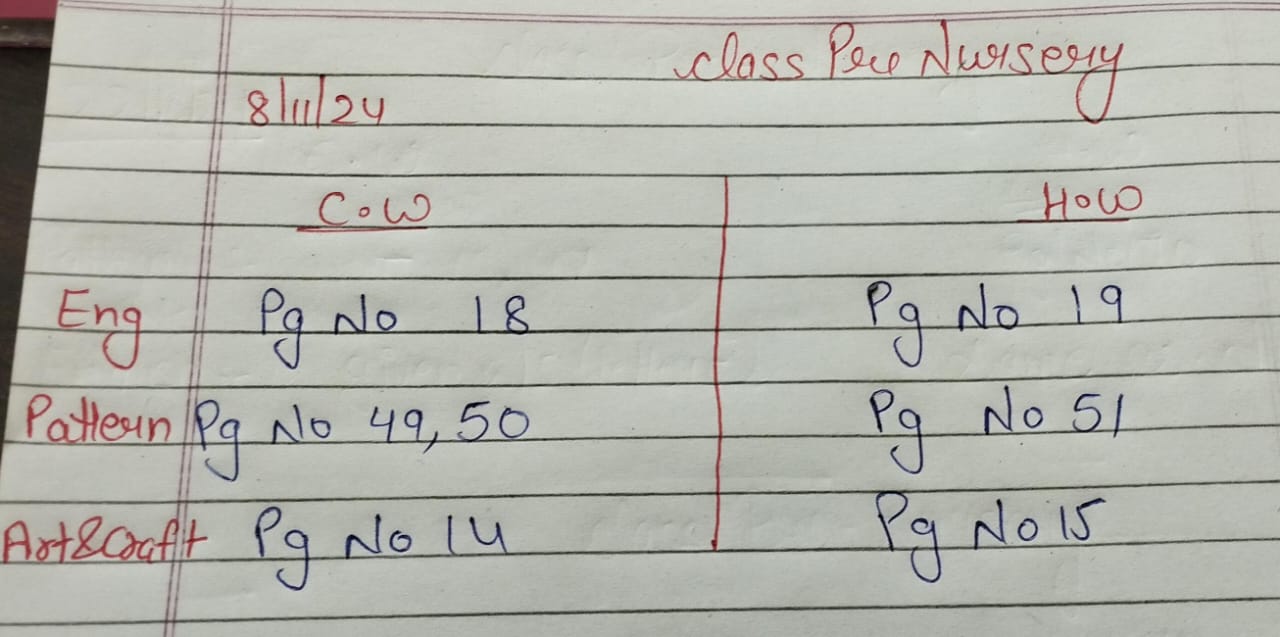 Class Pre Nursery
8/11/24
C.W H.W
Eng Pg No 18 Pg No 19
Pattern Pg No 49, 50 Pg No 51
Art&Craft Pg No 14 Pg No 15